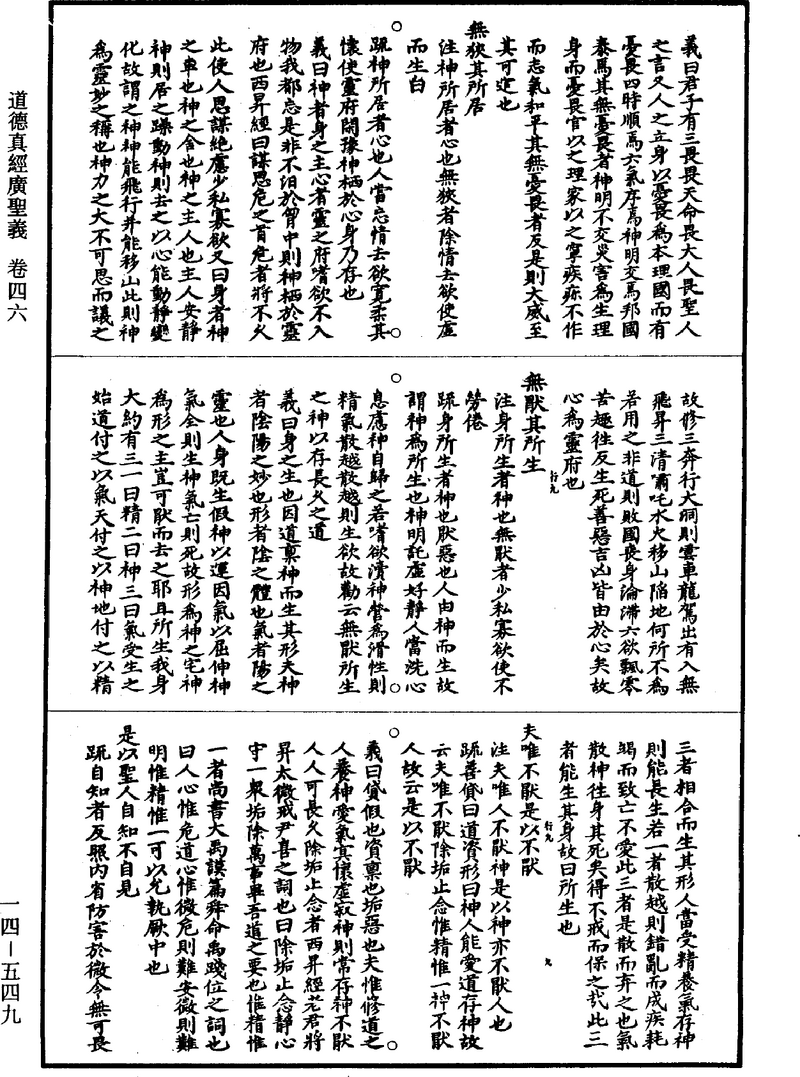 道德真經廣聖義　卷四六
義曰君子有三畏畏天命畏大人畏聖人
之言又人之立身以憂畏為本理國而有
憂畏四時順焉六氣序焉神明交焉邦國
泰焉其無憂畏者神明不交災害為生理
身而憂畏官以之理家以之寧疾疢不作
而志氣和平其無憂畏者反是則大威至
其可逭也
無狹其所居
注神所居者心也無狹者除情去欲使虛
而生白
疏神所居者心也人當忘情去欲寬柔其
懷使靈府閑豫神栖於心身乃存也
義曰神者身之主心者靈之府嗜欲不入
物我都忘是非不汨於胷中則神栖於靈
府也西昇經曰謀思危之首危者將不久
此使人思謀絕慮少私寡欲又曰身者神
之車也神之舍也神之主人也主人安靜
神則居之躁動神則去之以心能動靜變
化故謂之神神能飛行并能移山此則神
為靈妙之稱也神力之大不可思而議之
故修三奔行大洞則雲車龍駕出有入無
飛昇三清嘯吒水火移山陷地何所不為
若用之非道則敗國喪身淪滯六欲飄零
苦趣徃反生死善惡吉凶皆由於心矣故
心為靈府也
無猒其所生
注身所生者神也無猒者少私寡欲使不
勞倦
疏身所生者神也猒惡也人由神而生故
謂神為所生也神明託虛好靜人當洗心
息慮神自歸之若嗜欲瀆神營為滑性則
精氣散越散越則生欲故勸云無猒所生
之神以存長久之道
義曰身之生也因道稟神而生其形夫神
者陰陽之妙也形者陰之體也氣者陽之
靈也人身既生假神以運因氣以屈伸神
氣全則生神氣亡則死故形為神之宅神
為形之主豈可猒而去之耶且所生我身
大約有三一曰精二曰神三曰氣受生之
始道付之以氣天付之以神地付之以精
三者相合而生其形人當受精養氣存神
則能長生若一者散越則錯亂而成疾耗
竭而致亡不愛此三者是散而弃之也氣
散神徃身其死矣得不戒而保之哉此三
者能生其身故曰所生也
夫唯不猒是以不猒
注夫唯人不猒神是以神亦不猒人也
疏善貸曰道資形曰神人能愛道存神故
云夫唯不猒除垢止念惟精惟一神不猒
人故云是以不猒
義曰貸假也資稟也垢惡也夫惟修道之
人養神愛氣㝠懷虛寂神則常存神不猒
人人可長久除垢止念者西昇經老君將
昇太微戒尹喜之詞也曰除垢止念靜心
守一衆垢除萬事畢吾道之要也惟精惟
一者尚書大禹謨篇舜命禹踐位之詞也
曰人心惟危道心惟微危則難安微則難
明惟精惟一可以允執厥中也
是以聖人自知不自見
疏自知者反照内省防害於微令無可畏
一四－五四九